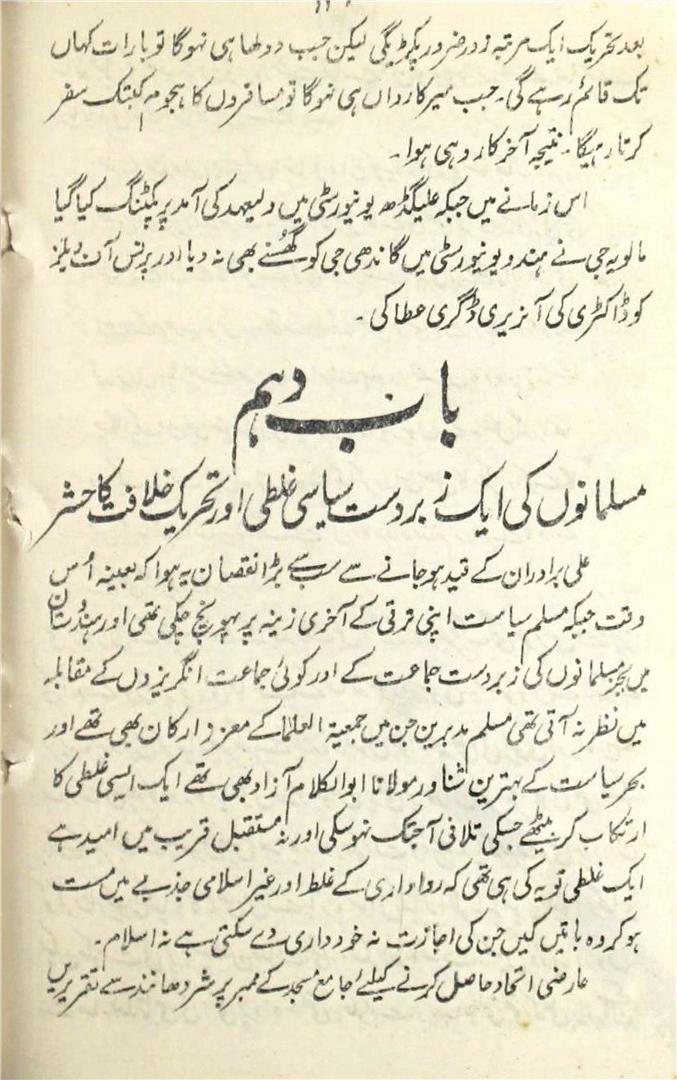 بعد تحریک ایک مرتبہ زور ضرور پکڑیگی لیکن جب دولھا ہی نہوگا تو بارات کہاں
تک قائم رہے گی۔ جب میر کارواں ہی نہوگا تو مسافروں کا ہجوم کبتک سفر
کرتا رہیگا۔ نتیجہ آخرکار وہی ہوا۔
اس زمانے میں جبکہ علیگڈھ یونیورسٹی میں ولیعہد کی آمد پر پکٹنگ کیا گیا
مالویہ جی نے ہندو یونیورسٹی میں گاندھی جی کو گھسنے بھی نہ دیا اور پرنس آف ویلز
کو ڈاکٹری کی آنریری ڈگری عطا کی۔
باب دہم
مسلمانوں کی ایک زبردست سیاسی غلطی اور تحریک خلافت کا حشر
علی برادران کے قید ہو جانے سے سب سے بڑا نقصان یہ ہوا کہ بعینہ اُس
وقت جبکہ مسلم سیاست اپنی ترقی کے آخری زینہ پر پہونچ چکی تھی اور ہندوستان
میں بجز مسلمانوں کی زبردست جماعت کے اور کوئی جماعت انگریزوں کے مقابلہ
میں نظر نہ آتی تھی مسلم مدبرین جن میں جمعیۃ العلما کے معزز ارکان بھی تھے اور
بحر سیاست کے بہترین شناور مولانا ابوالکلام آزاد بھی تھے ایک ایسی غلطی کا
ارتکاب کر بیٹھے جسکی تلافی آجتک نہوسکی اور نہ مستقبل قریب میں امید ہے
ایک غلطی تو یہ کی ہی تھی کہ رواداری کے غلط اور غیر اسلامی جذبے میں مست
ہو کر وہ باتیں کیں جن کی اجازت نہ خودداری دے سکتی ہے نہ اسلام۔
عارضی اتحاد حاصل کرنے کیلئے جامع مسجد کے ممبر پر شردھانند سے تقریریں